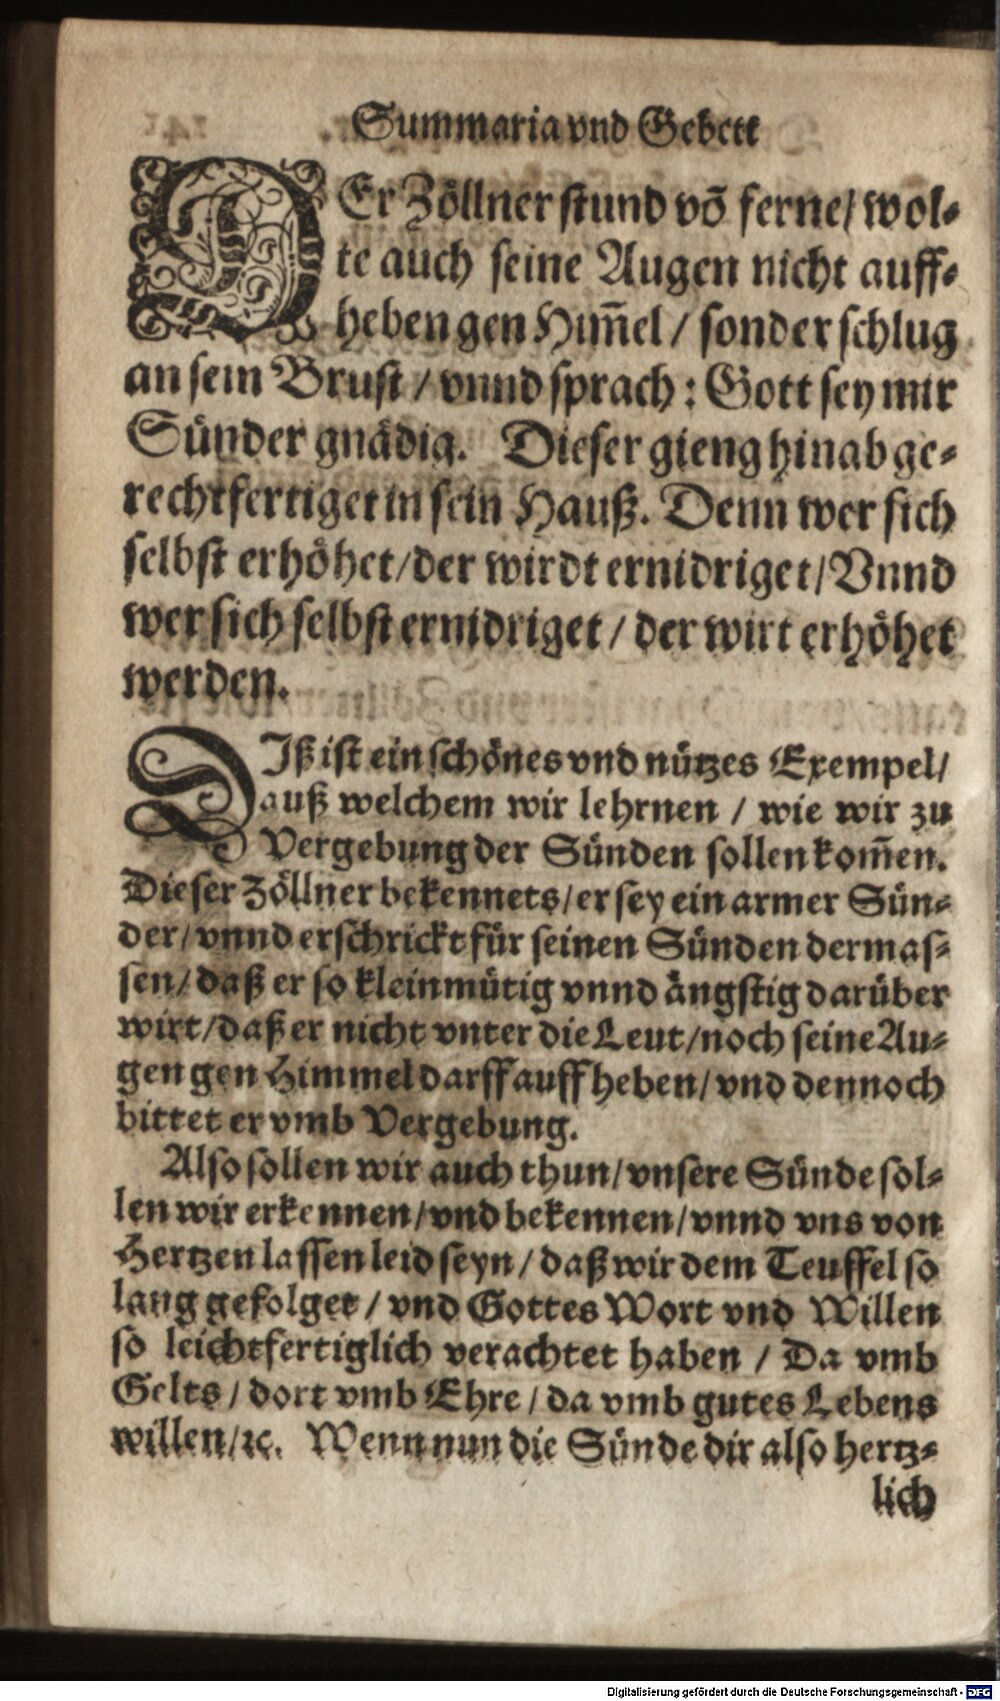 Summaria vnd Gebett
DEr Zöllner stund võ ferne/ wol-
te auch seine Augen nicht auff-
heben gen Him̃el / sonder schlug
an sein Brust / vnnd sprach : Gott sey mir
Sünder gnädig. Dieser gieng hinab ge-
rechtfertiget in sein Hauß. Denn wer sich
selbst erhöhet/der wirdt ernidriget/ Vnnd
wer sich selbst ernidriget / der wirt erhöhet
werden.
DIß ist ein schönes vnd nützes Exempel/
auß welchem wir lehrnen / wie wir zu
Vergebung der Sünden sollen kom̃en.
Dieser Zöllner bekennets/ er sey ein armer Sün-
der/ vnnd erschrickt für seinen Sünden dermas-
sen/ daß er so kleinmütig vnnd ängstig darüber
wirt/daß er nicht vnter die Leut/noch seine Au-
gen gen Himmel darff auff heben/ vnd dennoch
bittet er vmb Vergebung.
Also sollen wir auch thun/ vnsere Sünde sol-
len wir erkennen/vnd bekennen/ vnnd vns von
Hertzen lassen leid seyn / daß wir dem Teuffel so
lang gefolget / vnd Gottes Wort vnd Willen
so leichtfertiglich verachtet haben / Da vmb
Gelts / dort vmb Ehre / da vmb gutes Lebens
willen/ꝛc. Wenn nun die Sünde dir also hertz-
lich
Digitalisierung gefördert durch die Deutsche Forschungsgemeinschaft - DFG